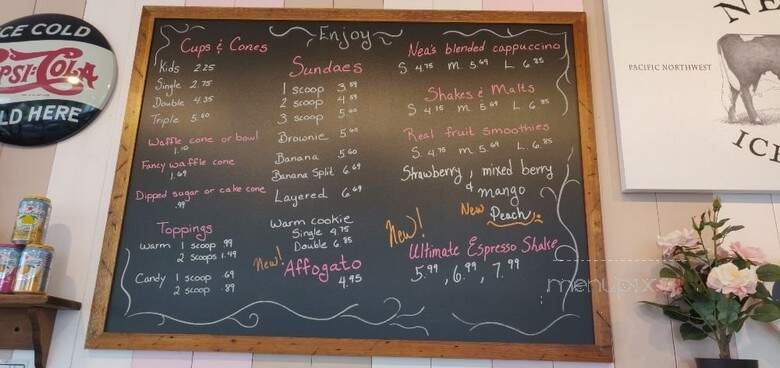 ICE COLD
PEPSI:COLA
SOLD HERE
Enjoy
Cups & Cones
Kids 2.25
Single 2.75
Double 4.35
Triple 5.60
Waffle cone or bowl
1.10
Fancy waffle cone
1.69
Dipped sugar or cake cone
.99
Toppings
Warm 1 scoop .99
2 scoops 1.49
Candy 1 scoop .69
2 scoop .89
Sundaes
1 scoop 3.89
2 scoop 4.89
3 scoop 5.60
Brownie 5.60
Banana 5.60
Banana Split 6.69
Layered 6.69
Warm cookie
Single 4.75
Double 6.85
New! Affogato
4.95
Nea's blended cappuccino
S 4.75 M. 5.69 L. 6.85
Shakes & Malts
S 4.75 M 5.69 L 6.85
Real fruit smoothies
S 4.75 M 5.69 L. 6.85
Strawberry, mixed berry
& mango
New Peach
New!
Ultimate Espresso Shake
5.99, 6.99, 7.99
menupix
NEA
PACIFIC NORTHWEST
ICE